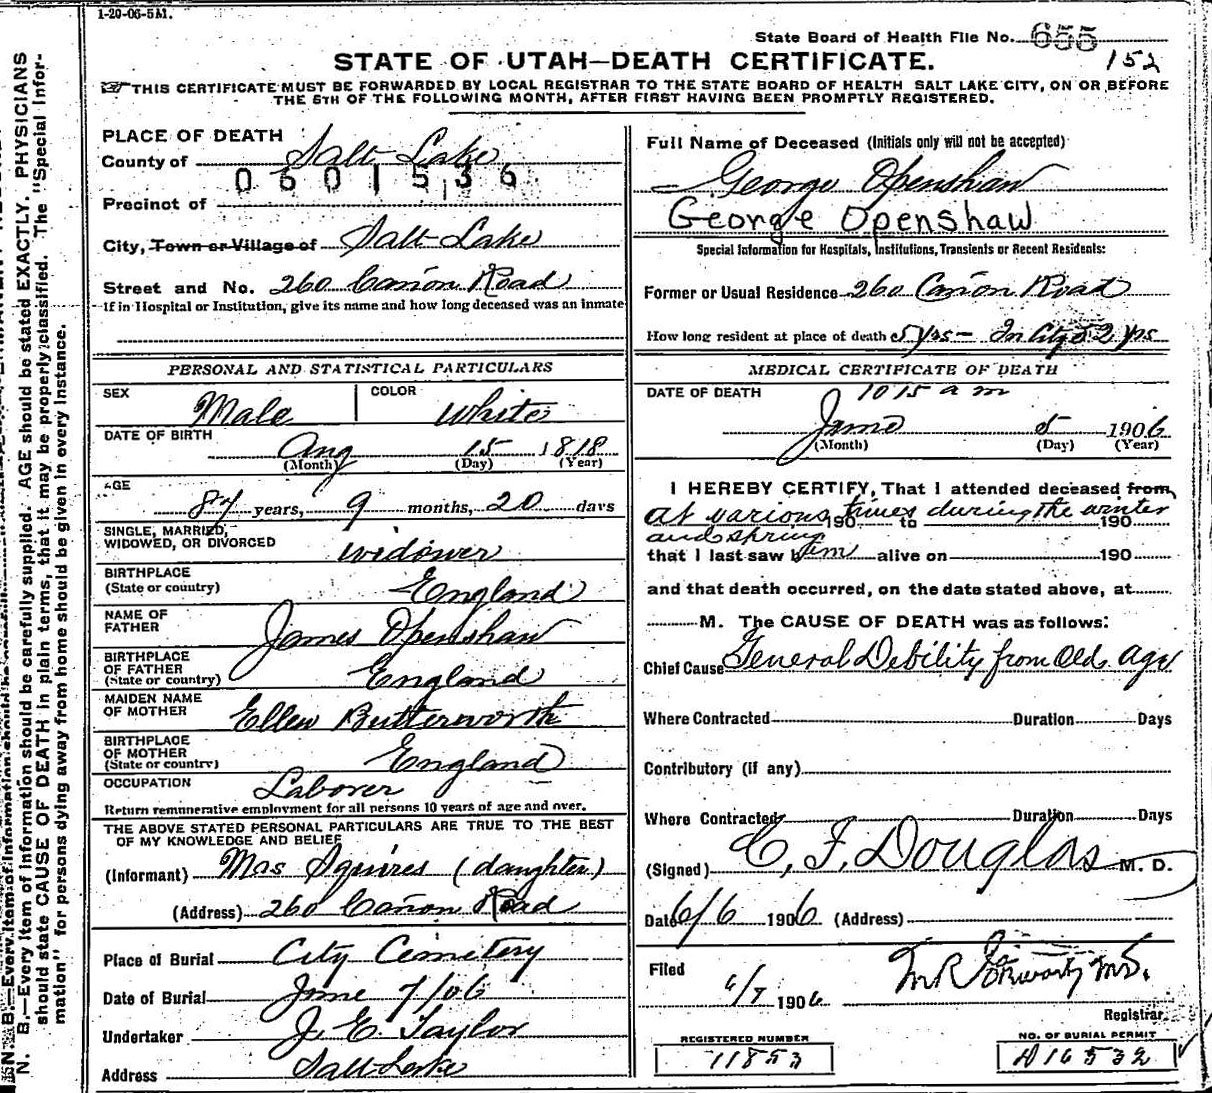 1-20-06-5M.
State Board of Health File No. 655
152
STATE OF UTAH—DEATH CERTIFICATE.
THIS CERTIFICATE MUST BE FORWARDED BY LOCAL REGISTRAR TO THE STATE BOARD OF HEALTH SALT LAKE CITY, ON OR BEFORE
THE 5TH OF THE FOLLOWING MONTH, AFTER FIRST HAVING BEEN PROMPTLY REGISTERED.
PLACE OF DEATH
County of Salt Lake
0601536
Precinct of
City, Town or Village of Salt Lake
Street and No. 260 Cañon Road
If in Hospital or Institution, give its name and how long deceased was an inmate
PERSONAL AND STATISTICAL PARTICULARS
SEX Male COLOR White
DATE OF BIRTH
Aug 15 1818
(Month) (Day) (Year)
AGE
87 years, 9 months, 20 days
SINGLE, MARRIED,
WIDOWED, OR DIVORCED widower
BIRTHPLACE
(State or country) England
NAME OF
FATHER James Openshaw
BIRTHPLACE
OF FATHER
(State or country) England
MAIDEN NAME
OF MOTHER Ellen Butterworth
BIRTHPLACE
OF MOTHER
(State or country) England
OCCUPATION Laborer
Return remunerative employment for all persons 10 years of age and over.
THE ABOVE STATED PERSONAL PARTICULARS ARE TRUE TO THE BEST
OF MY KNOWLEDGE AND BELIEF
(Informant) Mrs Squires (daughter)
(Address) 260 Cañon Road
Place of Burial City Cemetery
Date of Burial June 7/06
Undertaker J. E. Taylor
Address Salt Lake
Full Name of Deceased (Initials only will not be accepted)
George Openshaw
George Openshaw
Special Information for Hospitals, Institutions, Transients or Recent Residents:
Former or Usual Residence 260 Cañon Road
How long resident at place of death 5 yrs — In City 52 yrs
MEDICAL CERTIFICATE OF DEATH
DATE OF DEATH 10 15 a m
June 5 1906
(Month) (Day) (Year)
I HEREBY CERTIFY, That I attended deceased from
at various times during the winter
190 to 190
and spring
that I last saw him alive on 190
and that death occurred, on the date stated above, at
M. The CAUSE OF DEATH was as follows:
Chief Cause General Debility from Old Age
Where Contracted Duration Days
Contributory (if any)
Where Contracted Duration Days
(Signed) C. F. Douglas M. D.
Date 6/6 1906 (Address)
Filed
6/7 1906
Registrar.
REGISTERED NUMBER
11853
NO. OF BURIAL PERMIT
A16532
N. B.—Every item of information should be carefully supplied. AGE should be stated EXACTLY. PHYSICIANS
should state CAUSE OF DEATH in plain terms, that it may be properly classified. The "Special Infor-
mation" for persons dying away from home should be given in every instance.